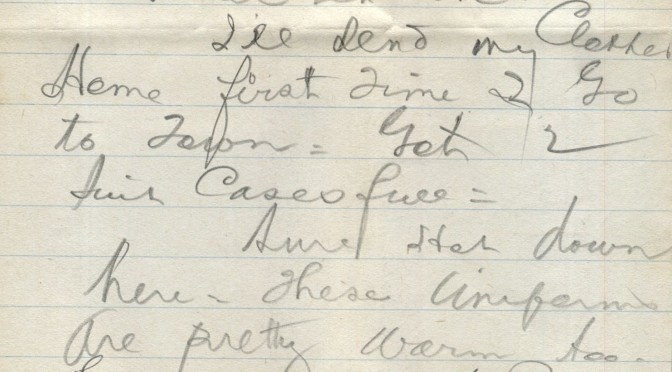 I'll send my Clothes
Home first time I Go
to Town = Got 2
Suit Cases full =
Sure Hot down
here - These Uniforms
are pretty warm too.